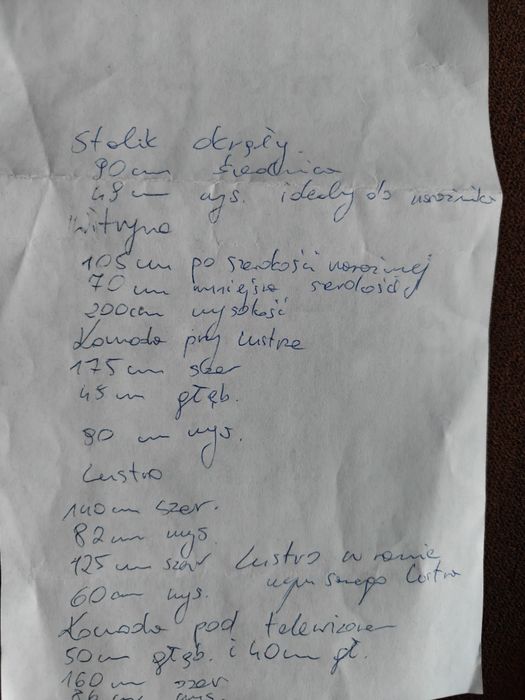 Stolik okrgły.
90 cm średnica
49 cm wys. idealny do narożnika
Witryna
105 cm po szerokości narożnej
70 cm mniejsza serokość
200cm wysokość
Komoda przy lustrze
175 cm szer
45 cm głęb.
90 cm wys.
Lustro
140 cm szer.
82 cm wys.
125 cm szer Lustro w ramie
60 cm wys. lustra
Komoda pod telewizorem
50 cm głęb. i 40cm gł.
160 cm szer
cm wys.